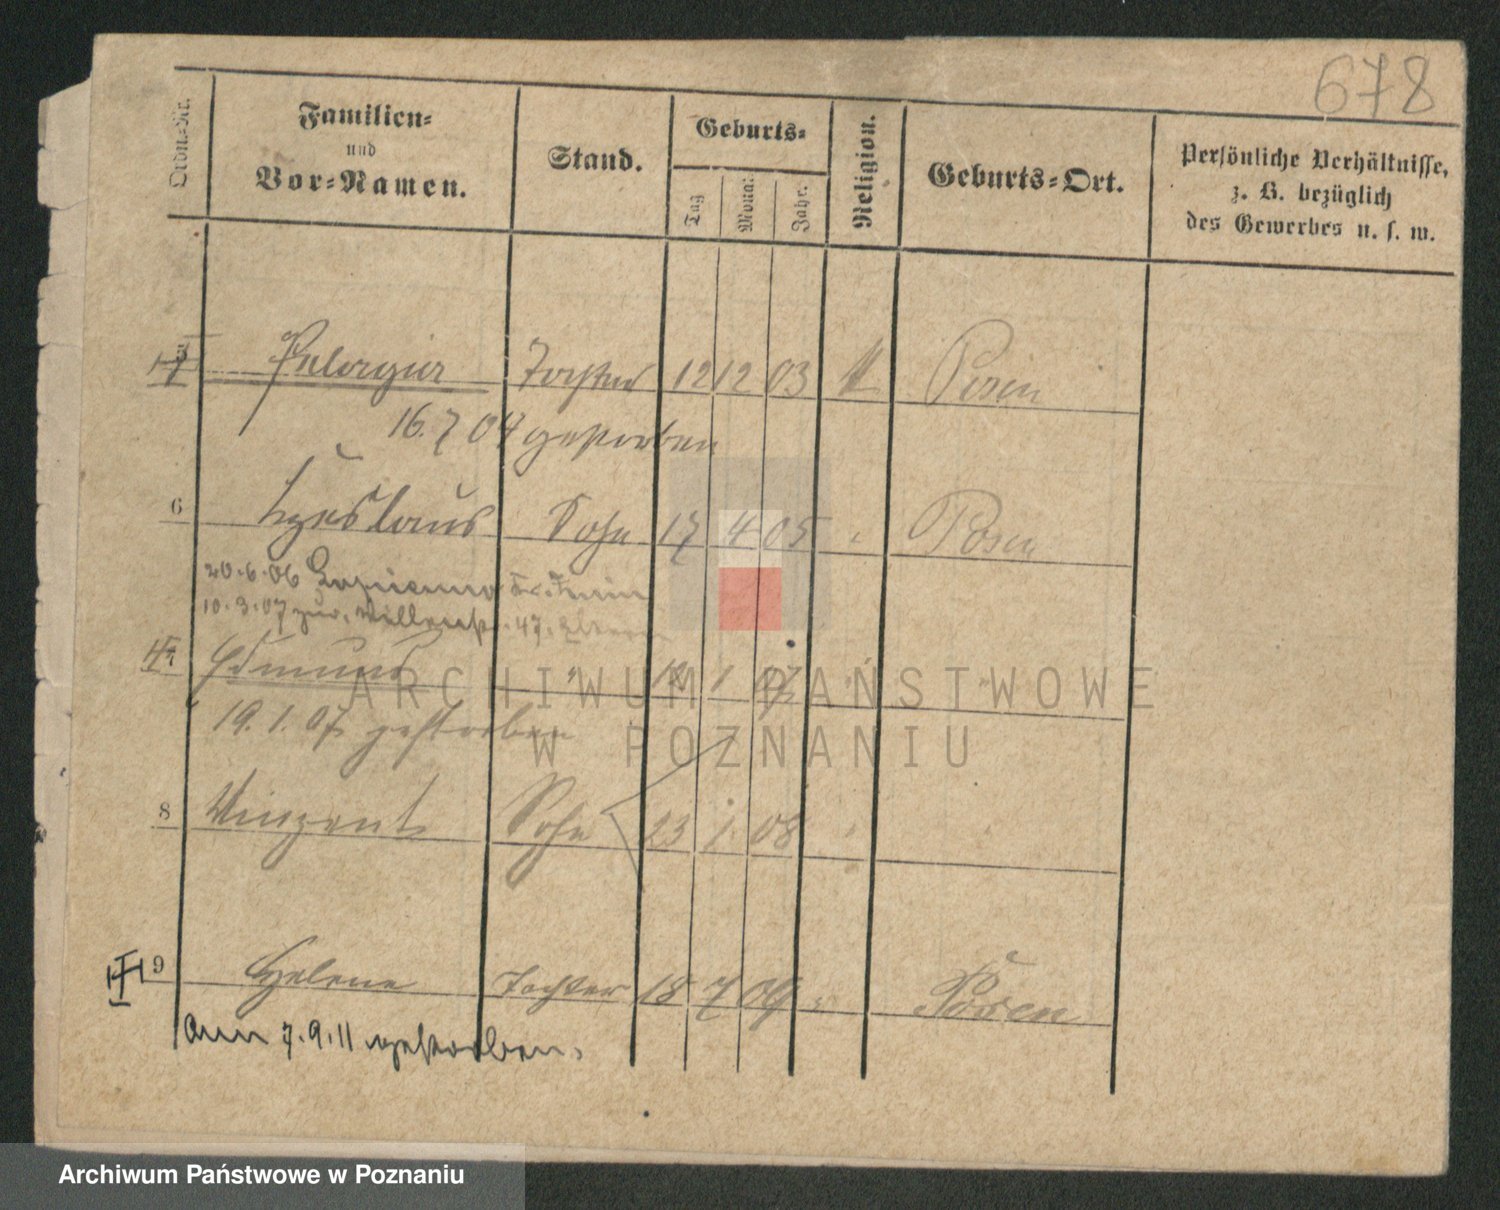 678
Ordn.-Nr.
Familien-
und
Vor-Namen.
Stand.
Geburts-
Tag
Monat
Jahr.
Religion.
Geburts-Ort.
Persönliche Verhältnisse,
z. B. bezüglich
des Gewerbes u. s. w.
Pelagia Tochter 12 12 03 Posen
16.7 04 gestorben
6 Czeslaus Sohn 17 4 05 " Posen
20.6.06
10.3.07 zur. 47. Eltern
7 Edmund " 12 1 07 " "
19.1.07 gestorben
8 Vinzent Sohn 23 1 08 " "
9 Helene Tochter 18 7 09 " Posen
am 7.9.11 gestorben.
ARCHIWUM PAŃSTWOWE
W POZNANIU
Archiwum Państwowe w Poznaniu